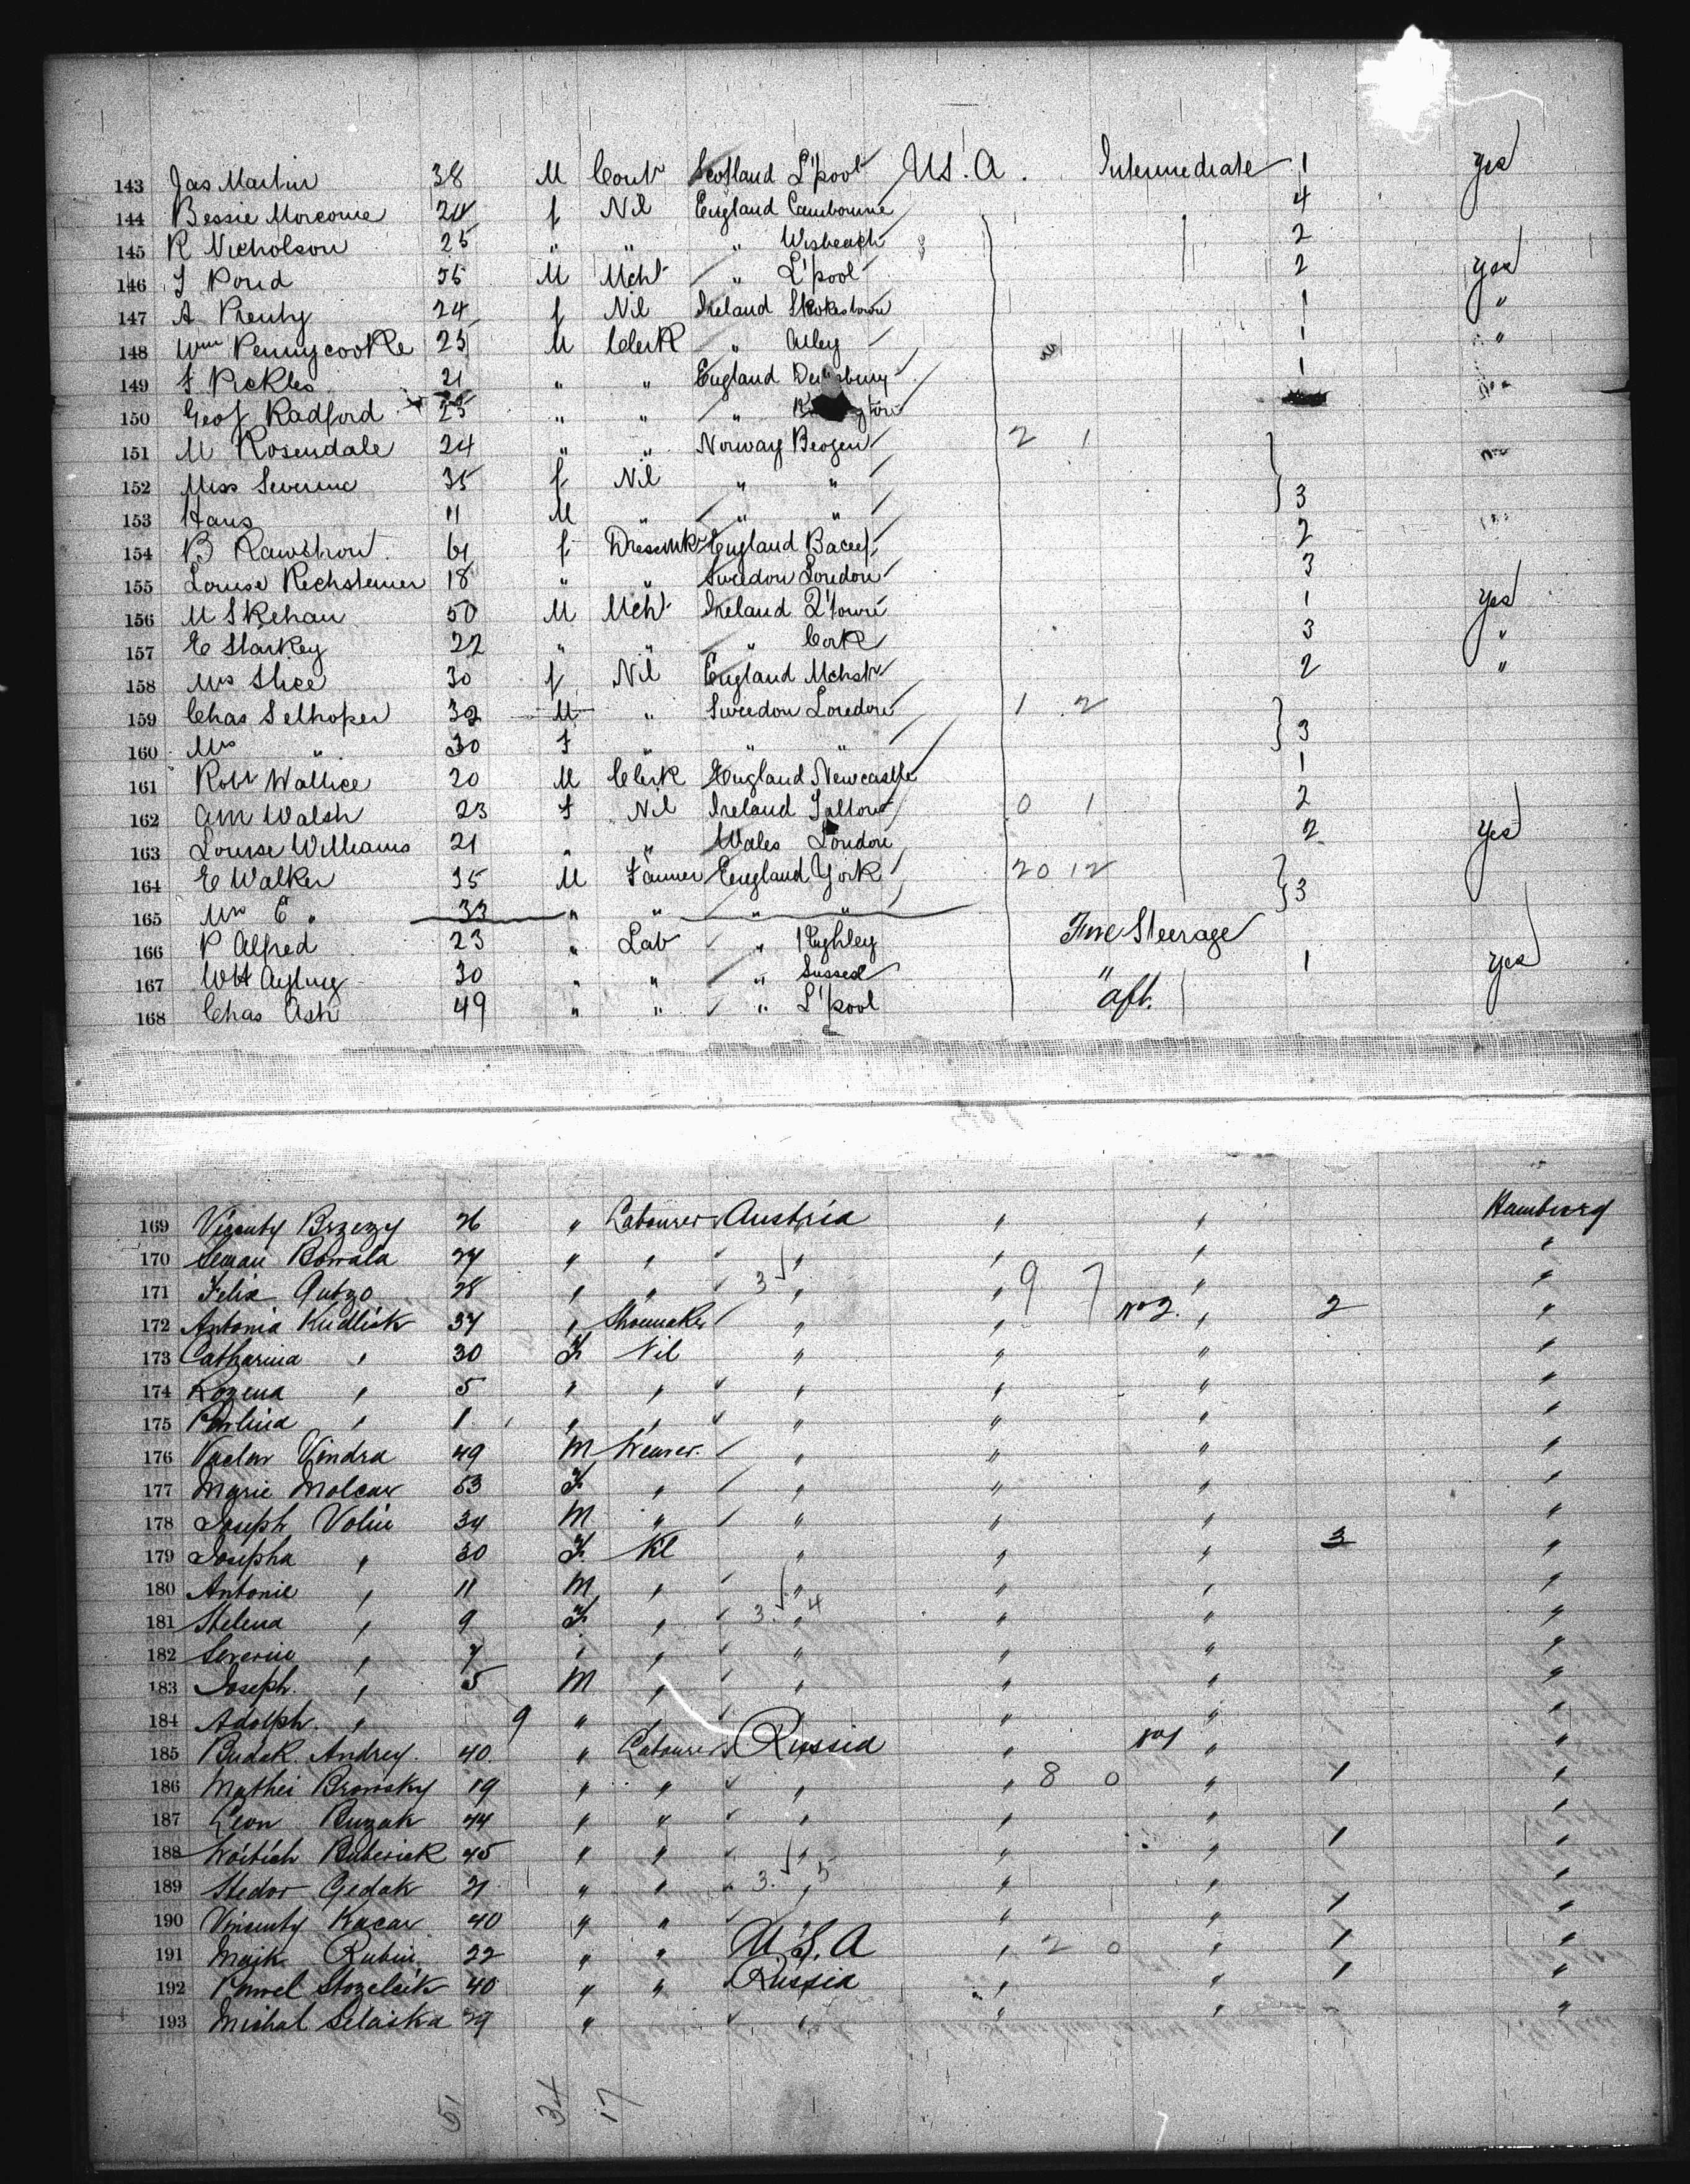 143 Jas Martin 38 M Cont Scotland L'pool U.S.A. Intermediate 1 yes
144 Bessie Morcome 24 f Nil England Cambourne 4
145 R Nicholson 25 " " " Wisbeach 2
146 J Pond 55 M Mcht " L'pool 2 yes
147 A Prenty 24 f Nil Ireland 1 "
148 Wm Pennycooke 25 M Clerk " 1 "
149 F Pickles 21 " " England 1
150 Geof Radford 25 " " "
151 M Rosendale 24 " " Norway Bergen 2 1
152 Miss Severine 35 f Nil " " 3
153 Hans 11 M " " "
154 B 61 f Dressmkr England Bacup 2
155 Louise Rechsteiner 18 " " Sweden London 3
156 M Skehan 50 M Mcht Ireland Q'town 1 yes
157 E Starkey 22 " " " Cork 3 "
158 Mrs Slice 30 f Nil England Mchstr 2 "
159 Chas Selhoper 32 M " Sweden London 1 2
160 Mrs " 30 f " " " 3
161 Robt Wallice 20 M Clerk England Newcastle 1
162 AM Walsh 23 f Nil Ireland 0 1 2
163 Louise Williams 21 " " Wales London 2 yes
164 E Walker 35 M Farmer England York 20 12 3
165 Mrs E " 33 " " " "
166 P Alfred 23 " Lab " Keighley Steerage
167 WH Ayling 30 " " " Sussex " 1 yes
168 Chas Ash 49 " " " L'pool aft.
169 Vicenty Brzezy 26 " Labourer Austria " " Hamburg
170 Bowala 27 " " " " " "
171 Felix 28 " " 3 " " 9 7 " "
172 Antonia Kudlick 37 " Shoemaker " " No 2. " 2 "
173 Catharina " 30 F Nil " " " "
174 Rozena " 5 " " " " " "
175 " 1 " " " " " "
176 Vaclav Vindra 49 M Weaver. " " " "
177 Marie Molcar 53 F " " " " "
178 Joseph Volin 34 M " " " " "
179 Josepha " 30 F. " " " 3 "
180 Antonie " 11 M " " " " "
181 Helena " 9 F. " 3. " 4 " " "
182 Severin " 7 " " " " " "
183 Joseph. " 5 M " " " " "
184 Adolph. " 9 " " " " "
185 Budak. Andrey. 40. " Labourer Russia " No 1 " "
186 Mathei Bronsky 19 " " " " 8 0 " 1 "
187 Leon Buzak 44 " " " " " "
188 Woitich 45 " " " " " 1 "
189 Gedak 21 " " 3. " 5 " " "
190 Vincenty Kacar 40 " " " " 1 "
191 Majk Rubin 22 " " U.S.A " 2 0 " 1 "
192 Pawel 40 " " Russia " " 1 "
193 Michal Selaska 29 " " " " "
51 34 17